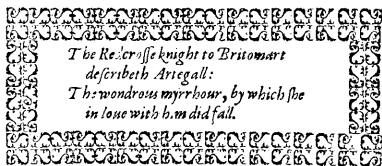 The Redcrosse knight to Britomart
describeth Artegall:
The wondrous myrrhour, by which she
in loue with him did fall.